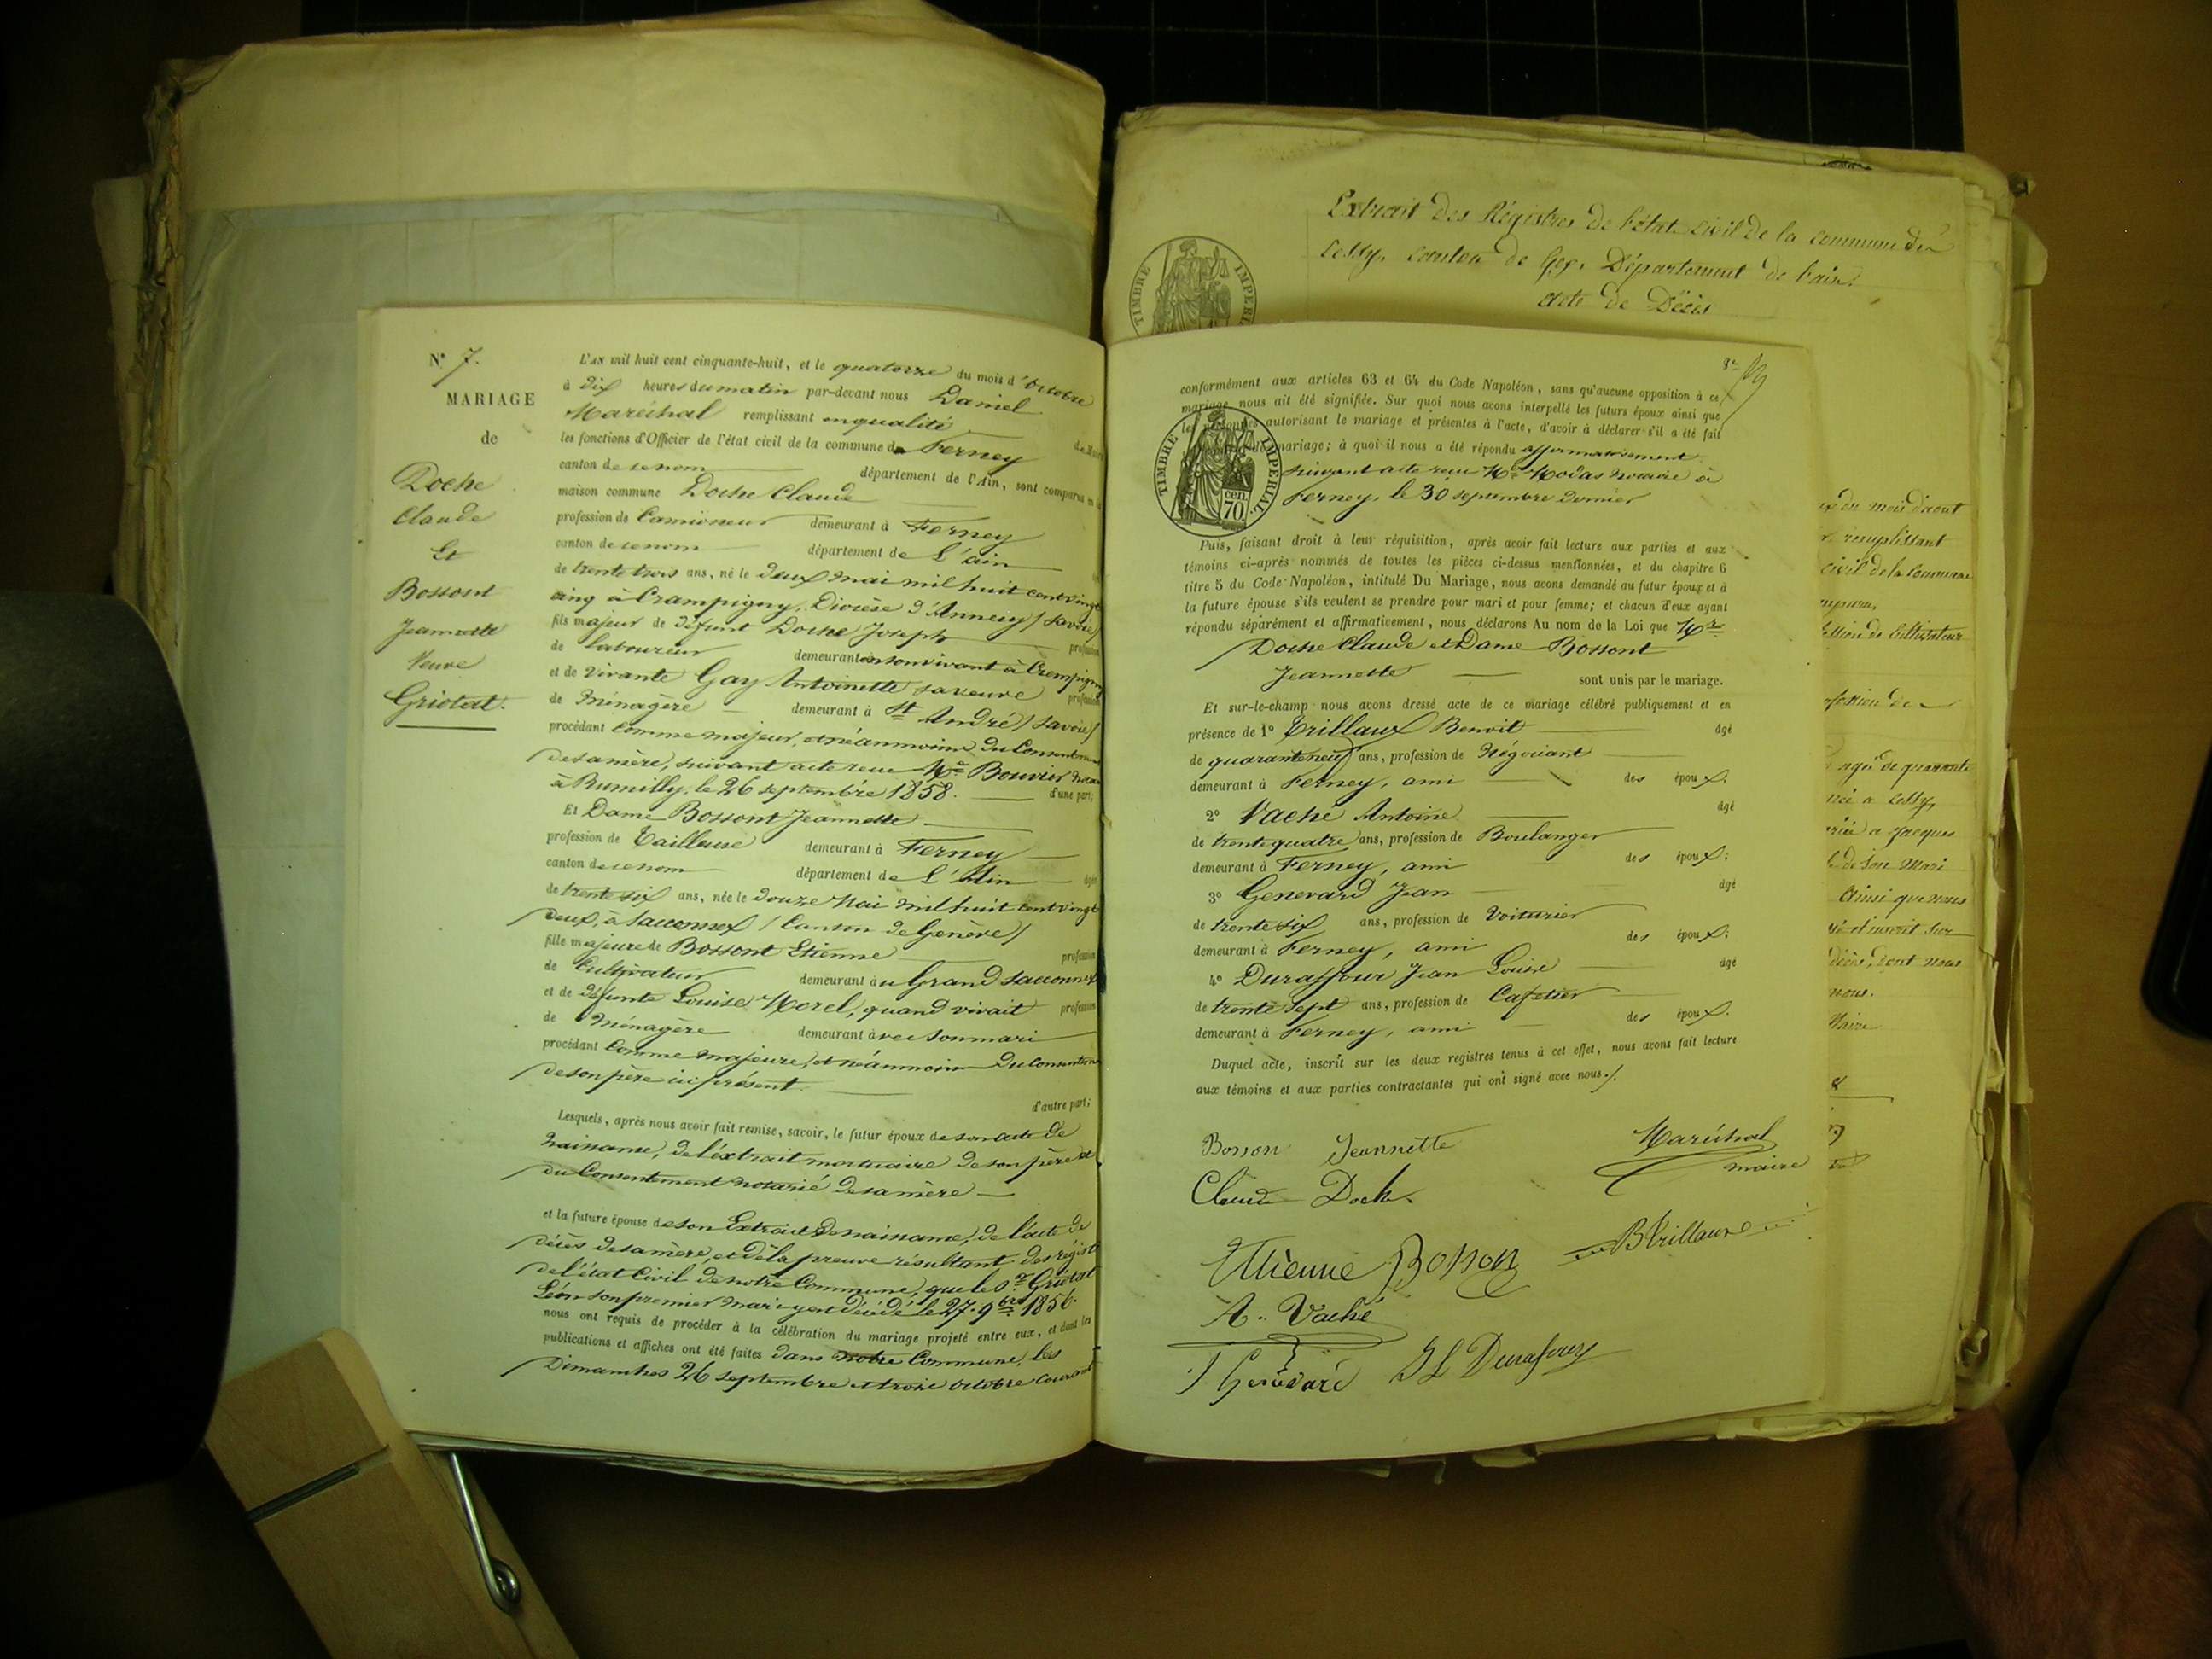 N° 7.
MARIAGE
de
Doche
Claude
Et
Bossont
Jeannette
Veuve
Griotat.
L'AN mil huit cent cinquante-huit, et le quatorze du mois d'Octobre
à dix heures du matin par-devant nous Daniel
Maréchal remplissant en qualité de Maire
les fonctions d'Officier de l'état civil de la commune de Ferney
canton de ce nom département de l'Ain, sont comparus en la
maison commune Doche Claude
profession de Camioneur demeurant à Ferney
canton de ce nom département de L'ain
de trente trois ans, né le deux mai mil huit cent vingt
cinq à Crampigny, Diocèse d'Annecy / Savoie /
fils majeur de défunt Doche Joseph profession
de laboureur demeurant en son vivant à Crempigny
et de vivante Gay Antoinette sa veuve profession
de Ménagère demeurant à St André / Savoie /
procédant comme majeur, et néanmoins du Consentement
de sa mère, suivant acte reçu Me Bouvier Notaire
à Rumilly, le 26 septembre 1858. d'une part;
Et Dame Bossont Jeannette
profession de Tailleuse demeurant à Ferney
canton de ce nom département de L'Ain âgée
de trente six ans, née le douze Mai mil huit cent vingt
deux, à Sacconnex / Canton de Genève /
fille majeure de Bossont Etienne profession
de Cultivateur demeurant au Grand Sacconnex
et de défunte Louise Morel, quand vivait profession
de Ménagère demeurant avec son mari
procédant Comme majeure, et néanmoins Du Consentement
de son père ici présent.
d'autre part;
Lesquels, après nous avoir fait remise, savoir, le futur époux de son acte de
naissance, de l'extrait mortuaire de son père et
du Consentement notarié de sa mère
et la future épouse de son Extrait de naissance, de l'acte de
décès de sa mère, et de la preuve résultant des régist
de l'état Civil de notre Commune, que le Sr Griotat
Léon son premier mari y est décédé le 27. 9bre 1856.
nous ont requis de procéder à la célébration du mariage projeté entre eux, et dont les
publications et affiches ont été faites dans notre Commune, les
Dimanches 26 septembre et trois Octobre courant
Extrait des Régistres de l'état civil de la commune de
Cessy, canton de Gex, Département de l'ain.
acte de Décès
TIMBRE IMPERIAL
8e
conformément aux articles 63 et 64 du Code Napoléon, sans qu'aucune opposition à ce
mariage nous ait été signifiée. Sur quoi nous avons interpellé les futurs époux ainsi que
les personnes autorisant le mariage et présentes à l'acte, d'avoir à déclarer s'il a été fait
mariage; à quoi il nous a été répondu affirmativement
suivant acte reçu Me Modas Notaire à
Ferney, le 30 septembre dernier
TIMBRE IMPERIAL
cen. 70.
Puis, faisant droit à leur réquisition, après avoir fait lecture aux parties et aux
témoins ci-après nommés de toutes les pièces ci-dessus mentionnées, et du chapitre 6
titre 5 du Code Napoléon, intitulé Du Mariage, nous avons demandé au futur époux et à
la future épouse s'ils veulent se prendre pour mari et pour femme; et chacun d'eux ayant
répondu séparément et affirmativement, nous déclarons Au nom de la Loi que Mr
Doche Claude et Dame Bossont
Jeannette sont unis par le mariage.
Et sur-le-champ nous avons dressé acte de ce mariage célébré publiquement et en
présence de 1° Trillaux Benoit âgé
de quarante neuf ans, profession de Négociant
demeurant à Ferney, ami des époux;
2° Vaché Antoine âgé
de trente quatre ans, profession de Boulanger
demeurant à Ferney, ami des époux;
3° Genevard Jean âgé
de trente six ans, profession de Voiturier
demeurant à Ferney, ami des époux;
4° Duraffour Jean Louise âgé
de trente sept ans, profession de Cafetier
demeurant à Ferney, ami des époux.
Duquel acte, inscrit sur les deux registres tenus à cet effet, nous avons fait lecture
aux témoins et aux parties contractantes qui ont signé avec nous./.
Bosson Jeannette
Maréchal
maire
Claude Doche
Etienne Bosson
B Trillaux
A. Vaché
J Genevard
JL Durafour
du mois d'aout
remplissant
civil de la Commune
de Cultivateur
profession de
agé de quarante
à Cessy,
à Jacques
de Son Mari
Ainsi que nous
et inscrit sur
décès, dont nous
nous.
Maire